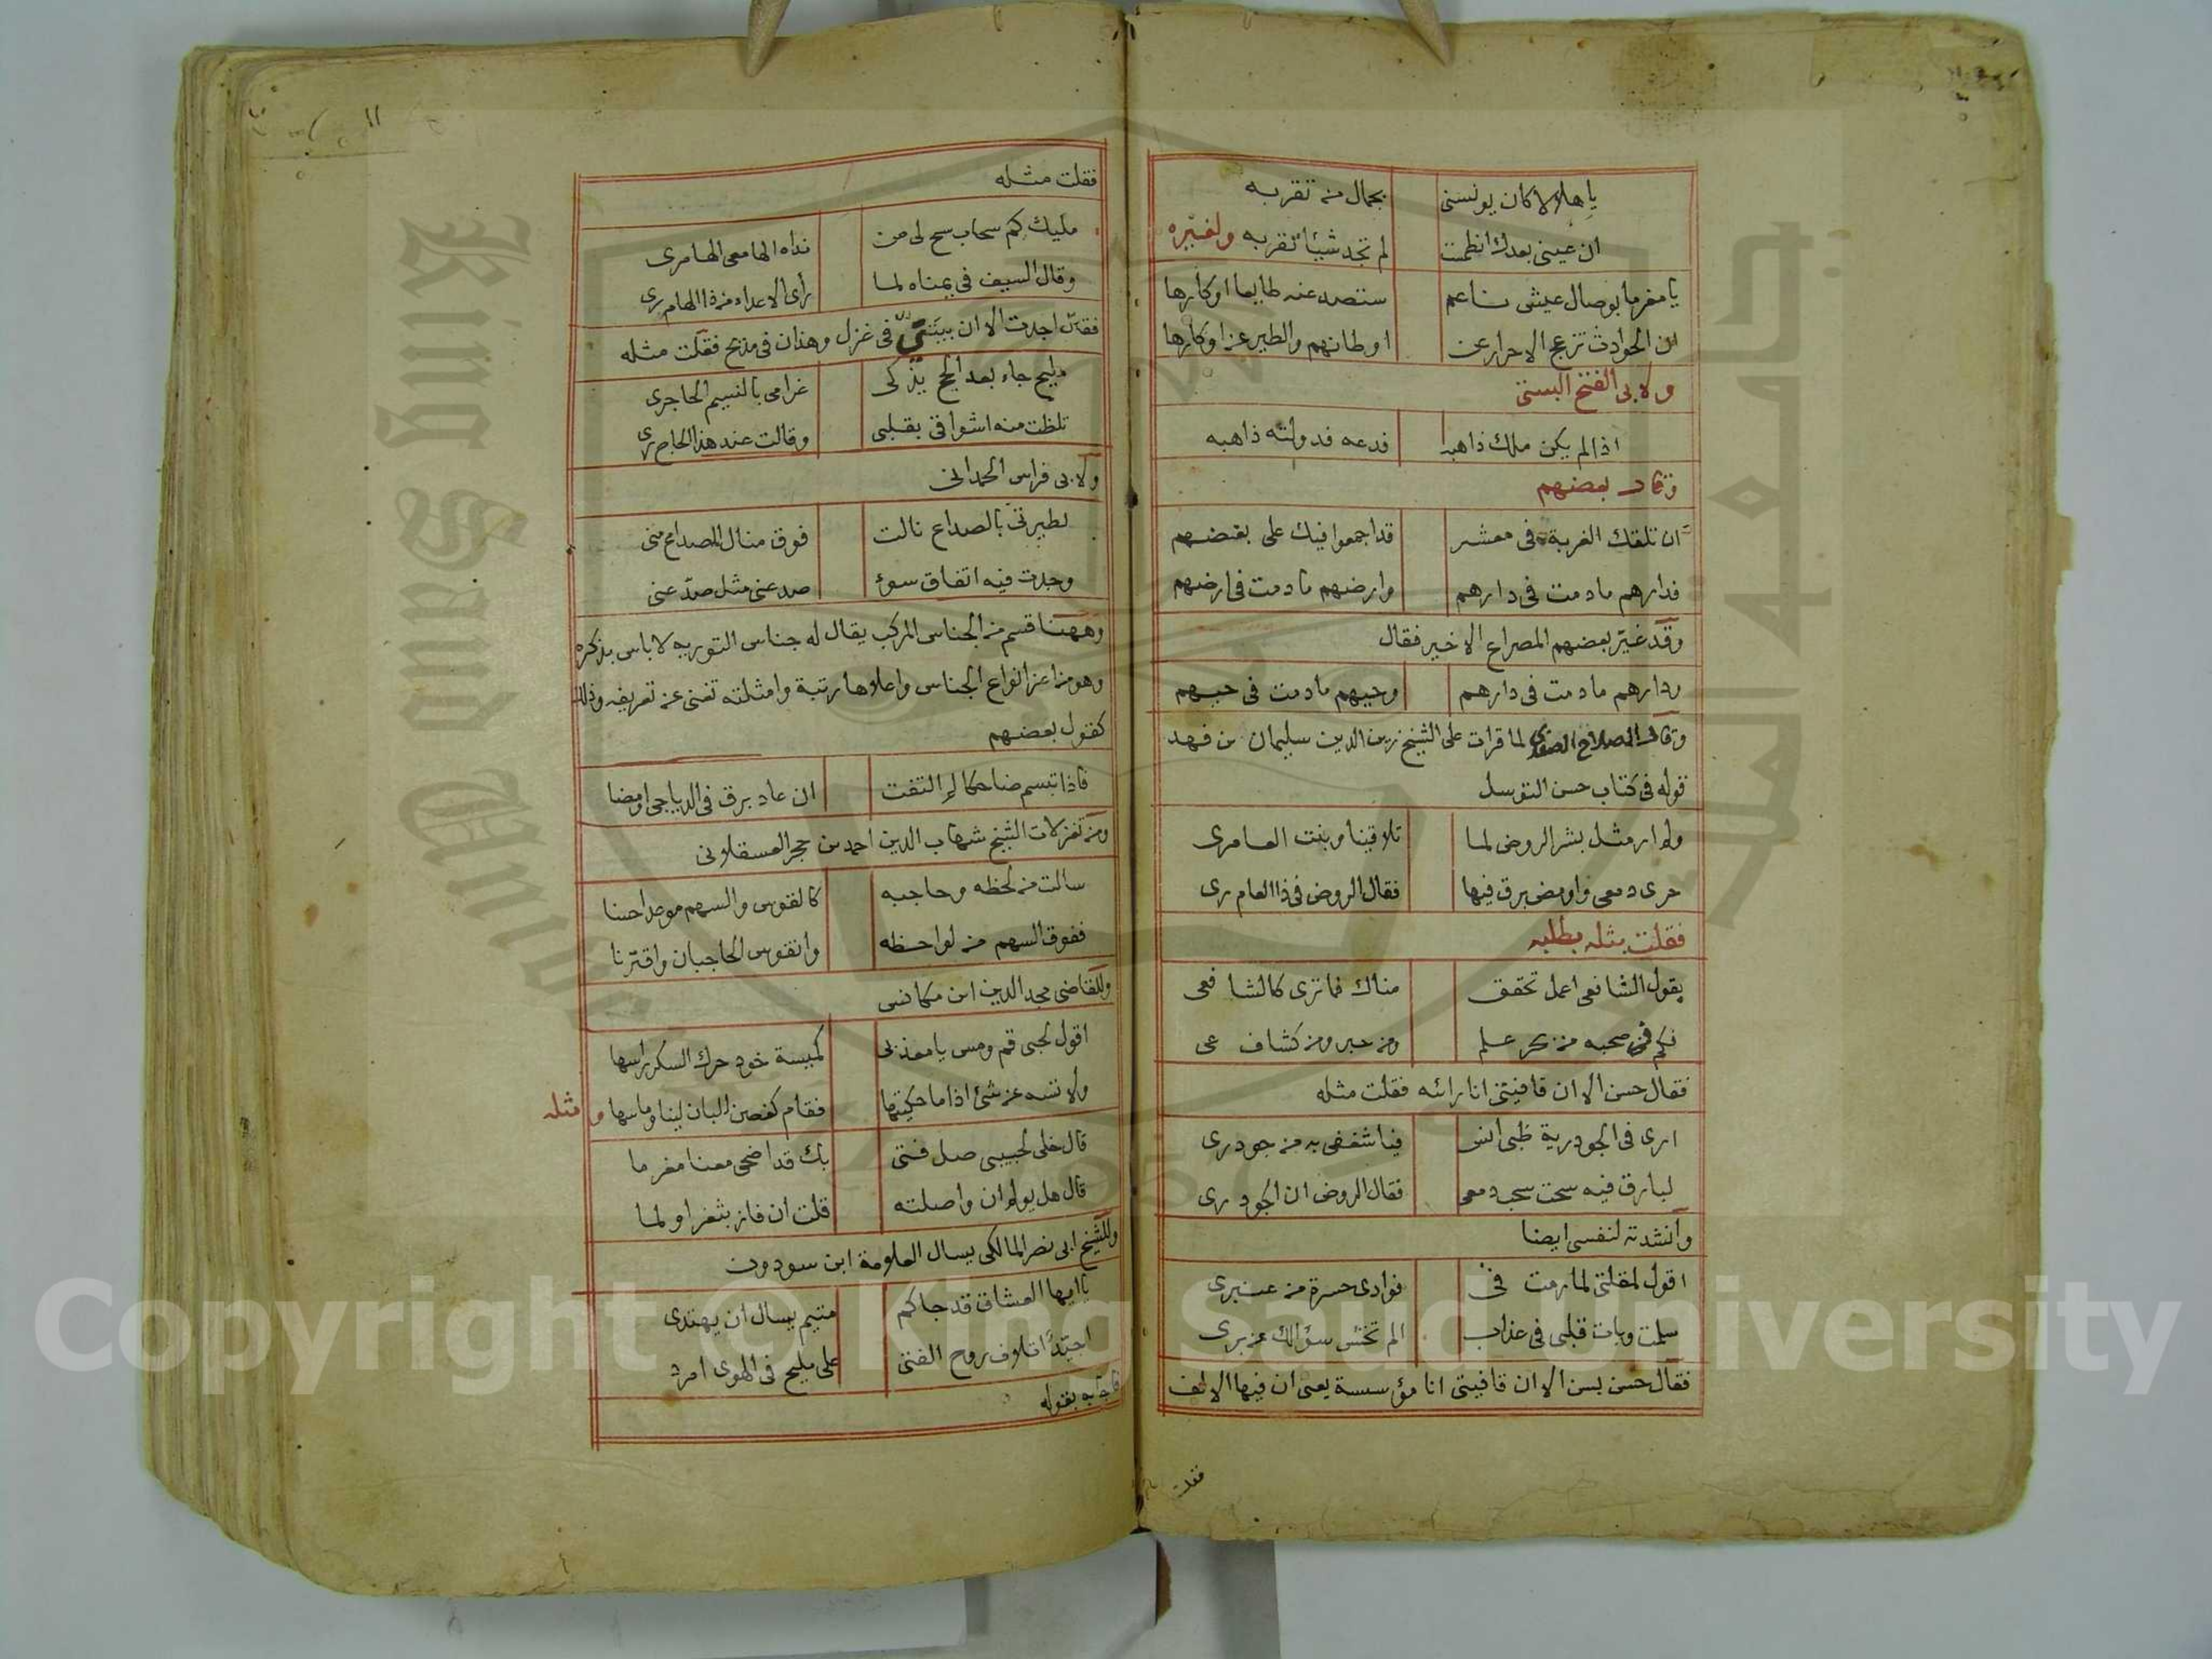 يا هلالا كان يونسنى بجمال من تقربه
ان عينى بعدك انظمت لم تجد شيئا تقربه ولغيره
يا مغرما بوصال عيش ناعم ستصد عنه طايعا او كارها
ان الحوادث تزعج الاحرار عن اوطانهم والطير عن اوكارها
ولابى الفتح البستى
اذا لم يكن ملك ذا هبه فدعه فدولته ذاهبه
وقال بعضهم
ان تلقك الغربة فى معشر قد اجمعوا فيك على بغضهم
فدارهم ما دمت فى دارهم وارضهم ما دمت فى ارضهم
وقد غير بعضهم المصراع الاخير فقال
ودارهم ما دمت فى دارهم وحيهم ما دمت فى حيهم
وقال الصلاح الصفدى لما قرات على الشيخ زين الدين سليمان بن فهد
قوله فى كتاب حسن التوسل
ولم ار مثل بشر الروض لما تلاقينا وبنت العامرى
جرى دمعى واومض برق فيها فقال الروض فى ذا العام رى
فقلت مثله بطلبه
يقول الشافعى اعمل تحقق مناك فما ترى كالشافعى
فكم فى صحبه من بحر علم ومن حبر ومن كشاف عى
فقال حسن الا ان قافيتى انا رائه فقلت مثله
ارى فى الجودرية ظبى انس فيا شغفى به من جودرى
لبارق فيه سحت سحب دمعى فقال الروض ان الجود رى
وانشدته لنفسى ايضا
اقول لمقلتى لما رمت فى فوادى حسرة من عنبرى
سلمت وبات قلبى فى عذاب الم تخش سؤالك عن برى
فقال حسن بسن الا ان قافيتى انا مؤسسة يعنى ان فيها الالف
فقلت
فقلت مثله
مليك كم سحاب سح لى من نداه الهامعى الهامرى
وقال السيف فى يمناه لما رأى الاعداء من ذا الهام رى
فقال اجدت الا ان بيتىّ فى غزل وهذان فى مدح فقلت مثله
مليح جاء بعد الحج يذكى غرامى بالنسيم الحاجرى
تلظت منه اشواقى بقلبى وقالت عند هذا الحاج رى
ولابى فراس الحمدانى
لطيرتى بالصداع نالت فوق منال الصداع منى
وجدت فيه اتفاق سوء صد عنى مثل صدّ عنى
وههنا قسم من الجناس المركب يقال له جناس التوريه لا باس بذكره
وهو من اعز انواع الجناس واعلاها رتبة وامثلته تغنى عن تعريفه وذلك
كقول بعضهم
فاذا تبسم ضاحكا لم التفت ان عاد برق فى الدياجى اومضا
ومن تغزلات الشيخ شهاب الدين احمد بن حجر العسقلانى
سالت من لحظه وحاجبه كالقوس والسهم موعدا حسنا
ففوق السهم من لواحظه وانقوس الحاجبان واقترنا
وللقاضى مجد الدين ابن مكانس
اقول لحبى قم ومس يا معذبى كميسة خود حرك السكر راسها
ولا تسه عن شئ اذا ما حكيتها فقام كغصن البان لينا وماسها ومثله
قال خلى لحبيبى صل فتى بك قد اضحى معنا مغرما
قال هل يولم ان واصلته قلت ان فاز بثغر اولما
وللشيخ ابى نصر المالكى يسال العلامة ابن سودون
يا ايها العشاق قد جاكم متيم يسال ان يهتدى
اجيّد اتلاف روح الفتى على مليح فى الهوى امرد
فاجابه بقوله
Copyright © King Saud University
King Saud University